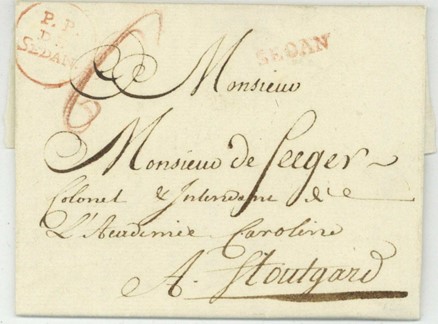 P. P.
D.
SEDAN
SEDAN
Monsieur
Monsieur de Seeger
Colonel & Intendant de
L'Academie Caroline
A. Stoutgard